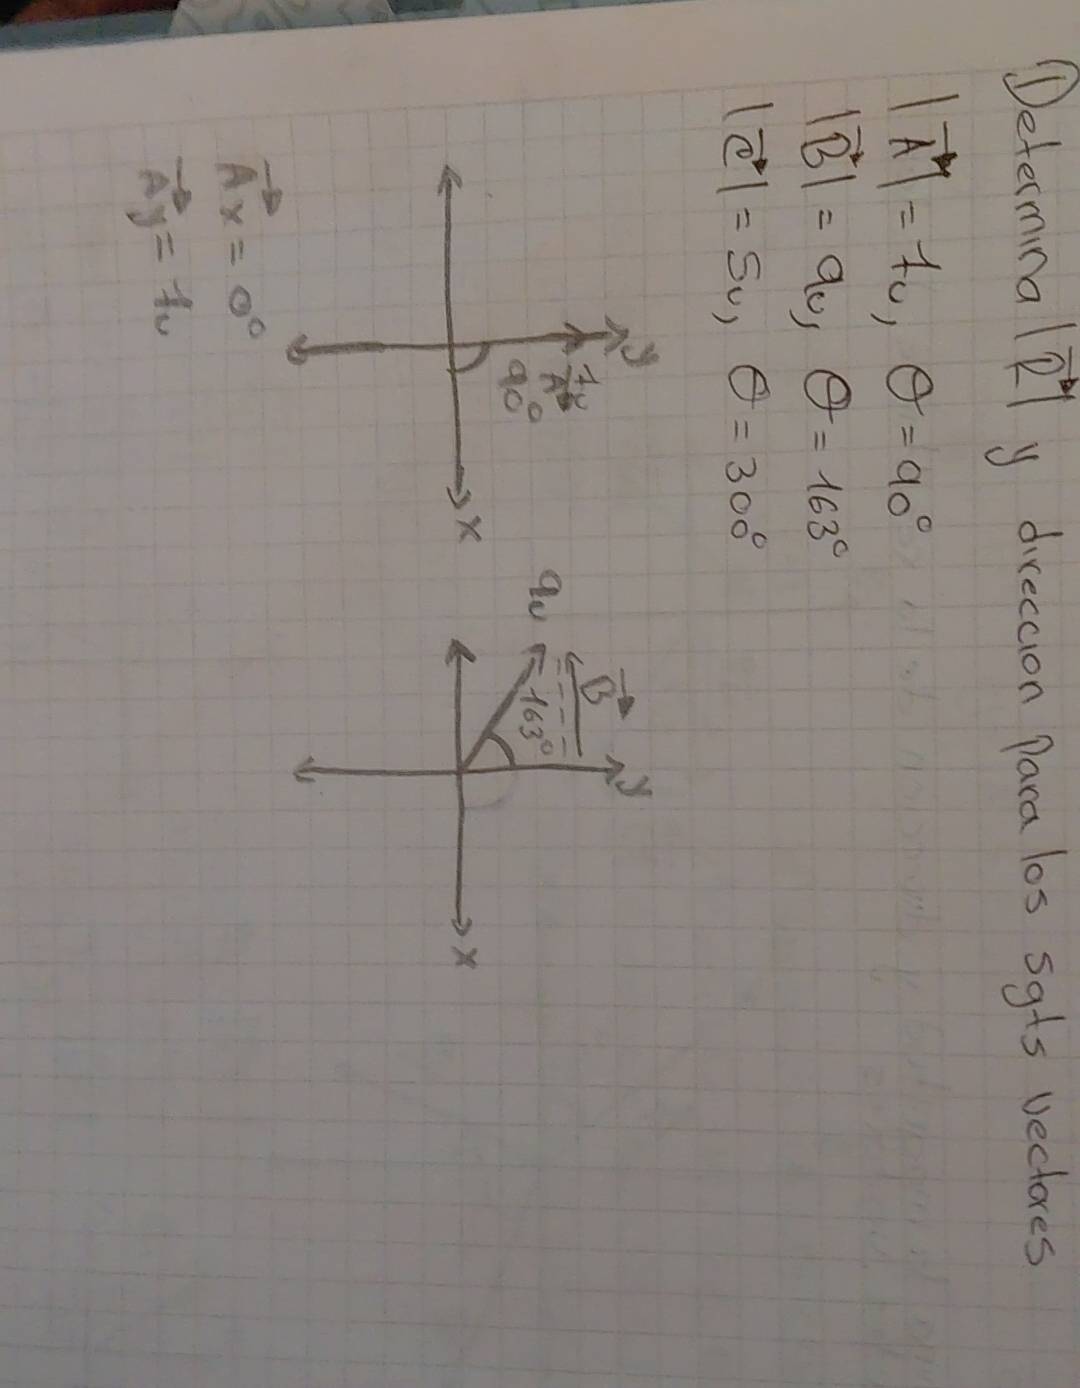 ① Determina |R| y dirección para los sgts vectores
|A| = 7u, θ = 90°
|B| = 9u, θ = 163°
|C| = 5u, θ = 300°
y
7u
A
90°
x
Ax = 0°
Ay = 7u
y
B
9u
163°
x